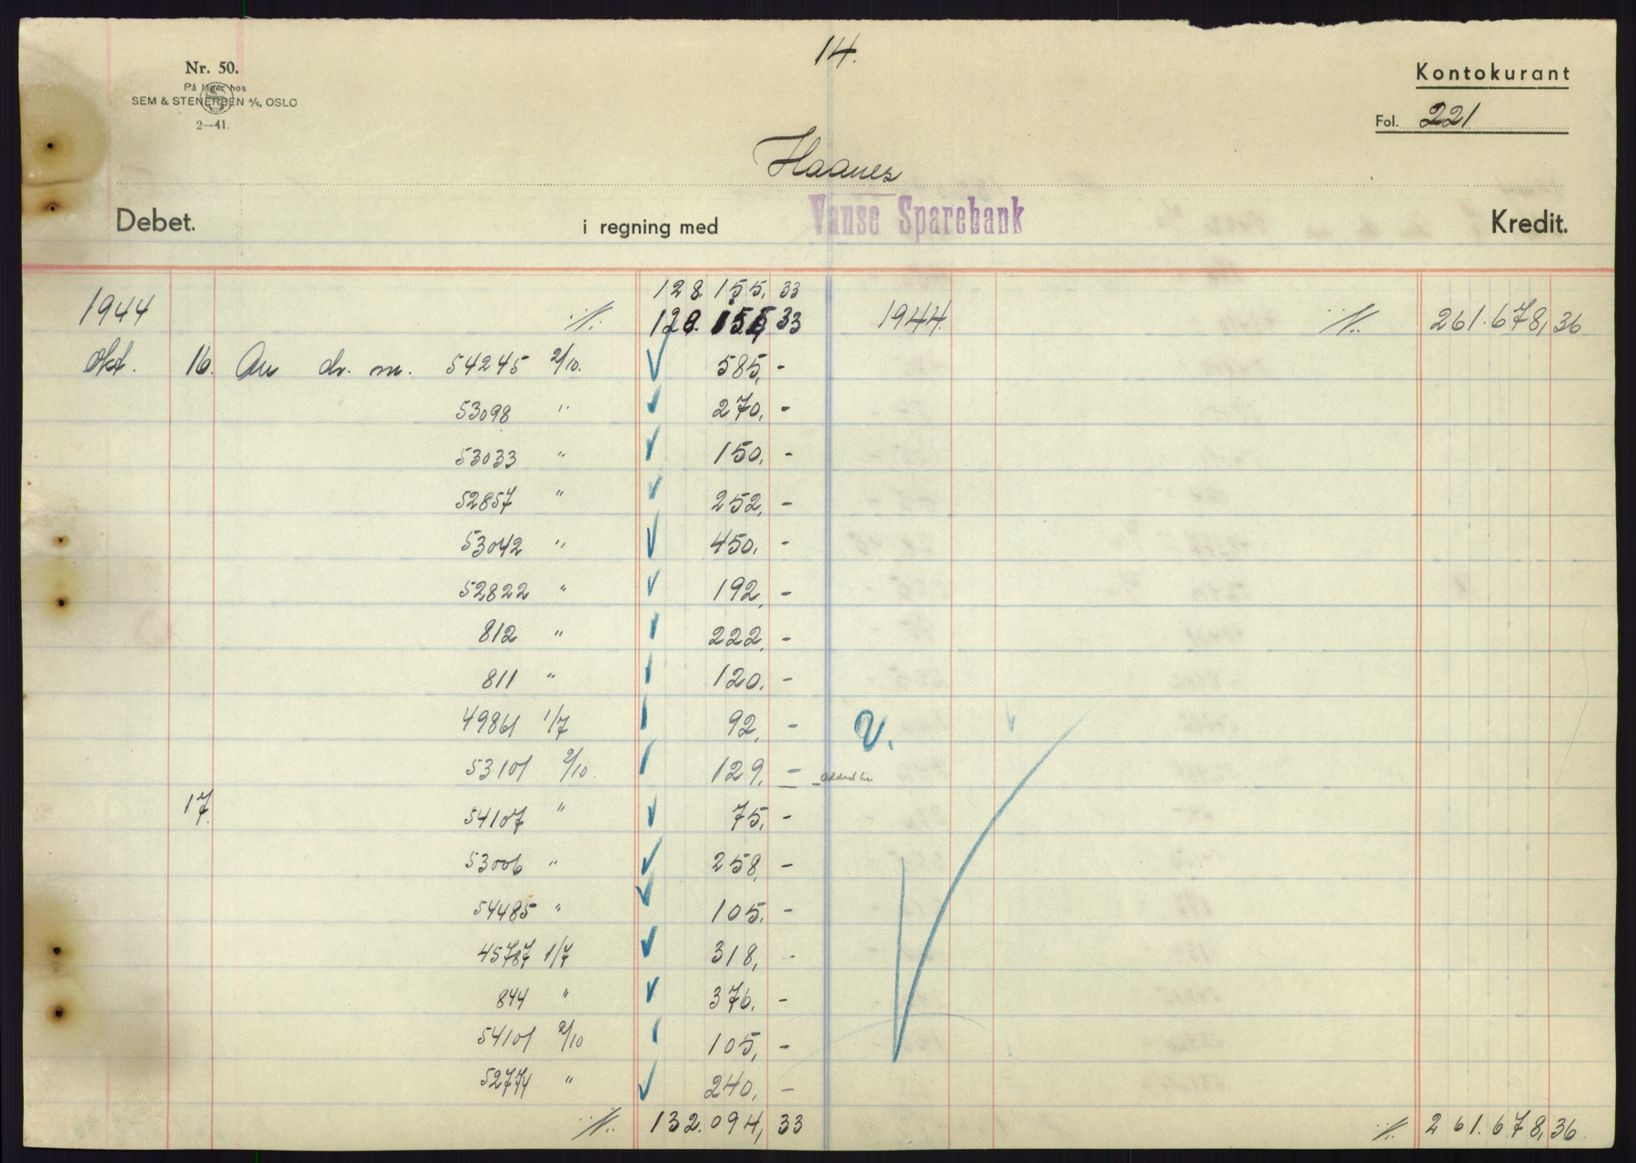 14.
Nr. 50.
På lager hos
SEM & STENERSEN A/S, OSLO
2—41.
Kontokurant
Fol. 221
Haanes
Debet.
i regning med
Vanse Sparebank
Kredit.
128.155,33
1944 %. 128.155,33 1944 %. 261.678,36
Okt. 16. An dr. m. 54245 2/10. 585,-
53098 " 270,-
53033 " 150,-
52857 " 252,-
53042 " 450,-
52822 " 192,-
812 " 222,-
811 " 120,-
49861 1/7 92,- V.
53101 2/10. 129,-
17. 54107 " 75,-
53006 " 258,-
54485 " 105,-
45787 1/7 318,-
844 " 376,-
54101 2/10 105,-
52774 " 240,-
%. 132.094,33 %. 261.678,36